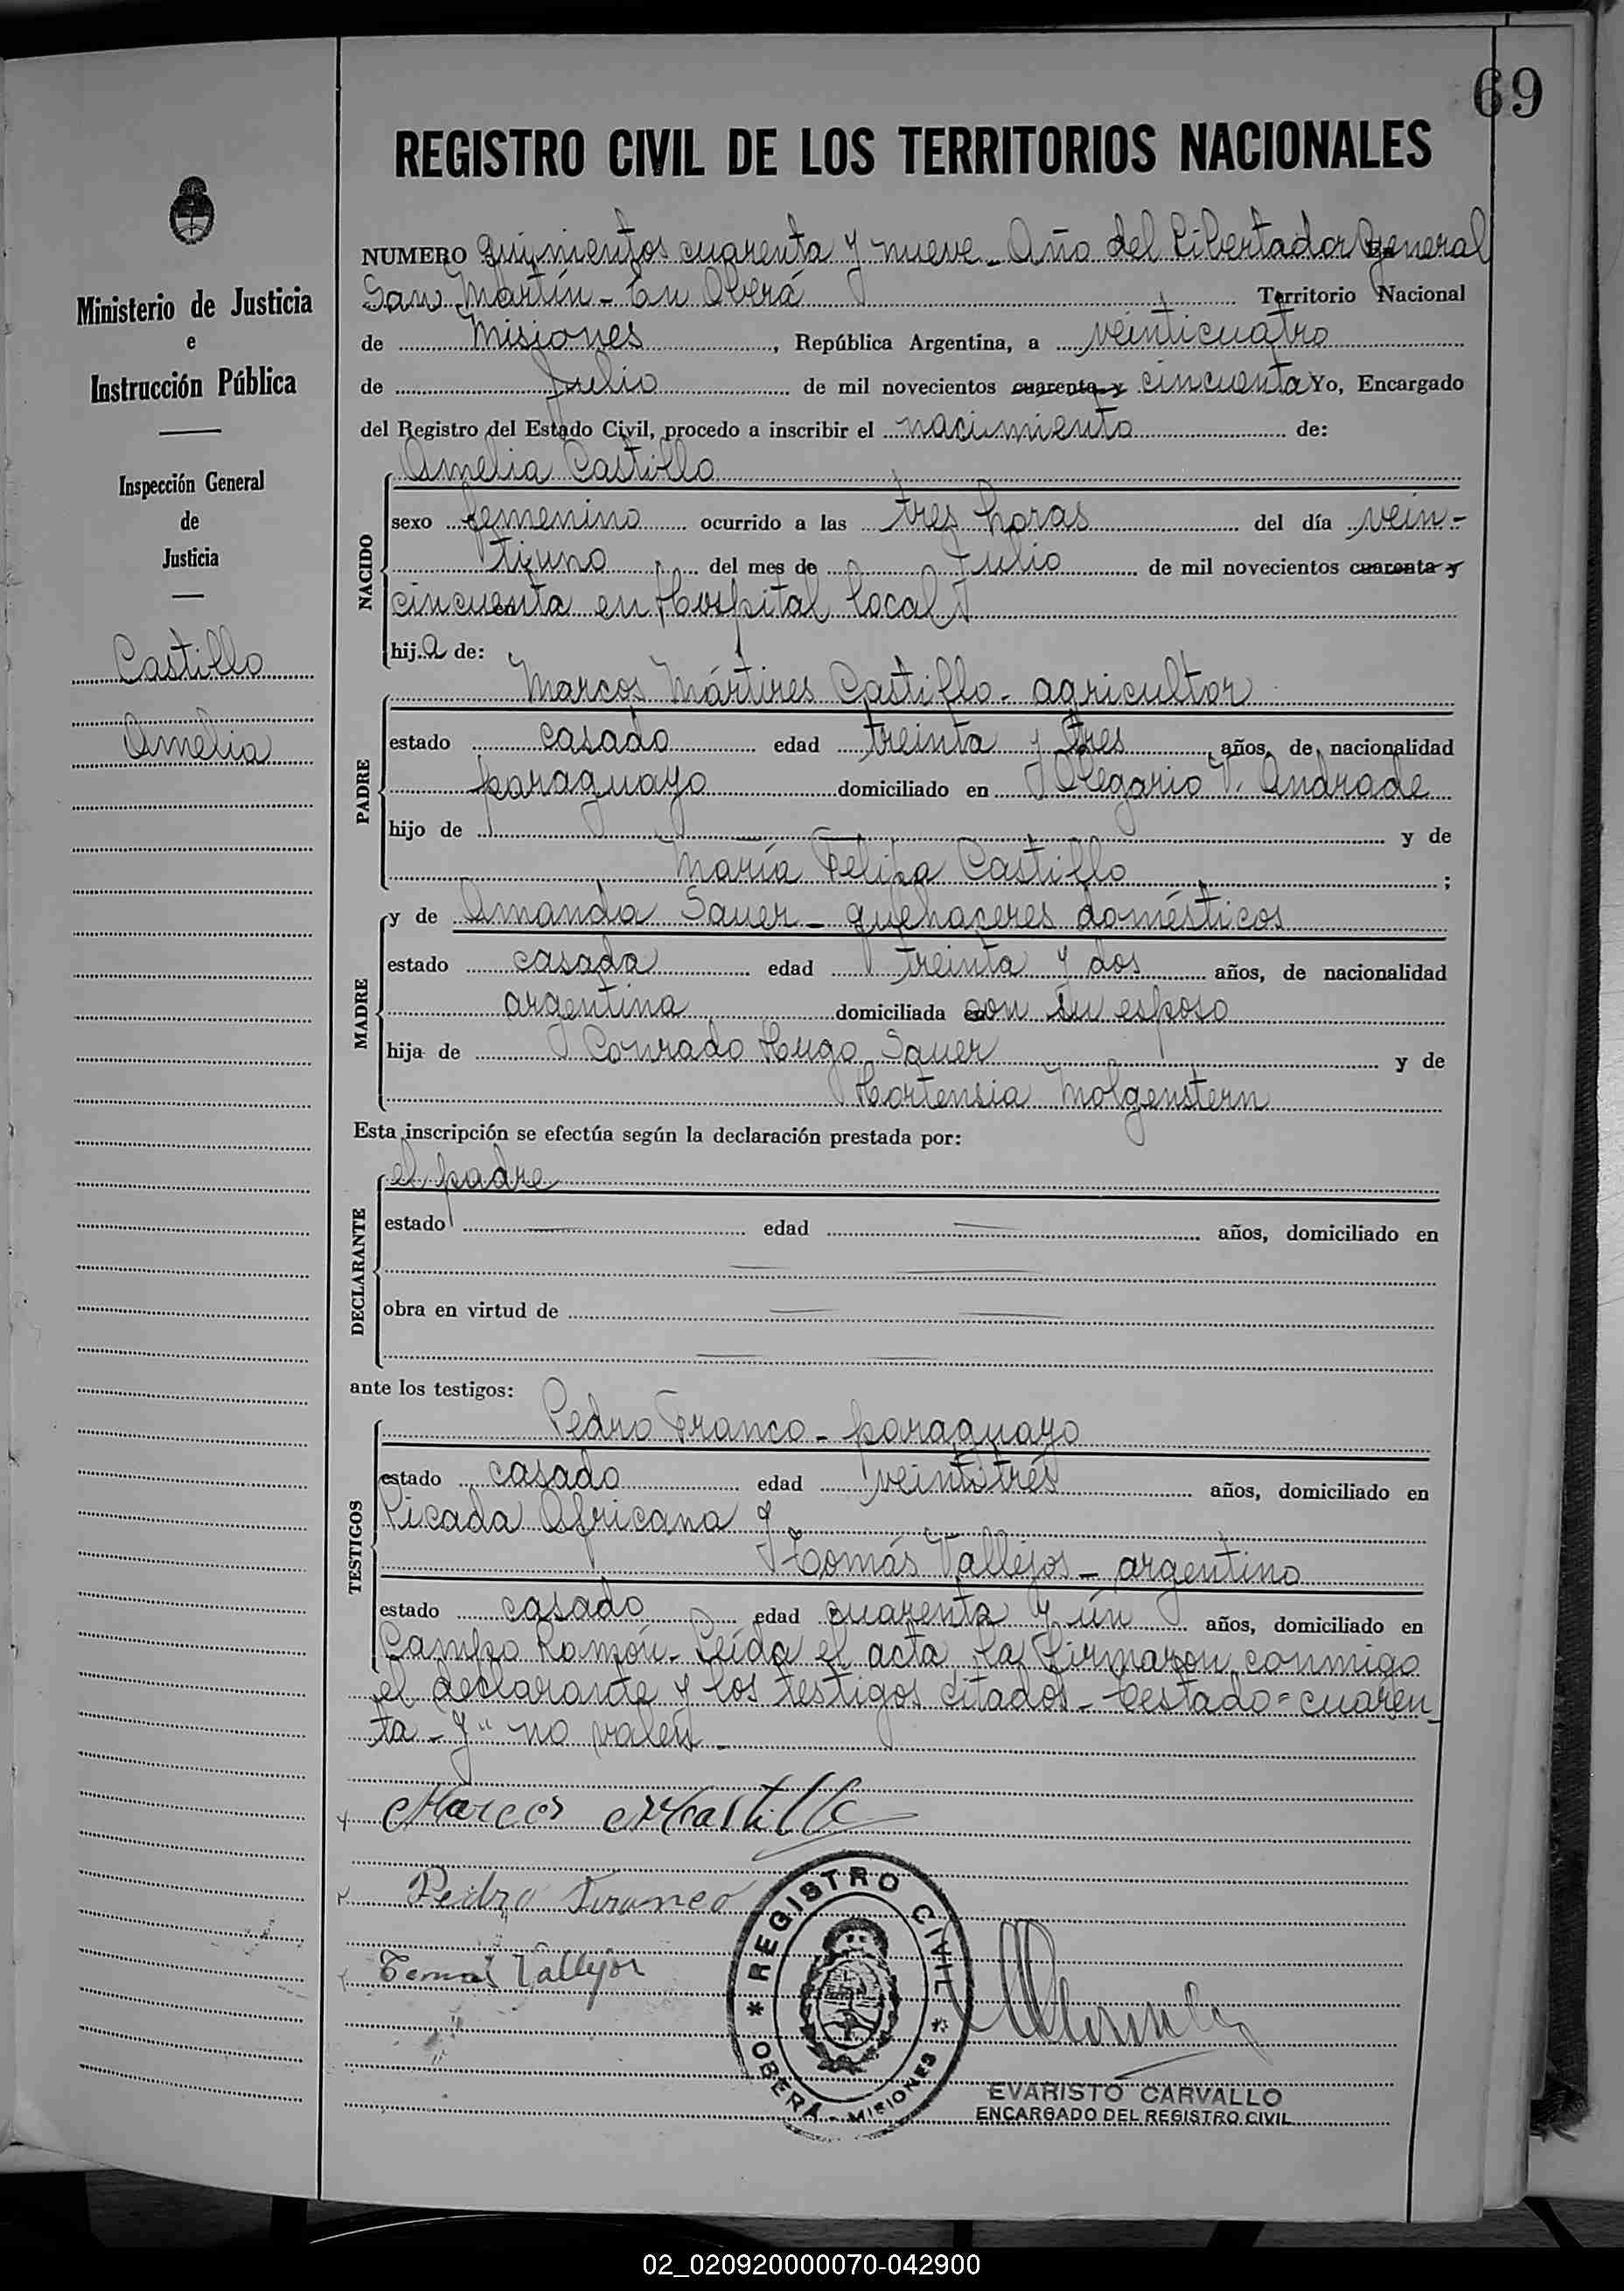 69
REGISTRO CIVIL DE LOS TERRITORIOS NACIONALES
NUMERO quinientos cuarenta y nueve - Año del Libertador General
San Martín - En Oberá Territorio Nacional
de Misiones, República Argentina, a veinticuatro
de Julio de mil novecientos cuarenta y cincuenta Yo, Encargado
del Registro del Estado Civil, procedo a inscribir el nacimiento de:
Ministerio de Justicia
e
Instrucción Pública
Inspección General
de
Justicia
Castillo
Amelia
NACIDO
Amelia Castillo
sexo femenino ocurrido a las tres horas del día vein-
tiuno del mes de Julio de mil novecientos cuarenta y
cincuenta en Hospital local
hija de:
PADRE
Marcos Mártires Castillo - agricultor
estado casado edad treinta y tres años, de nacionalidad
paraguayo domiciliado en Olegario V. Andrade
hijo de y de
María Felipa Castillo ;
MADRE
y de Amanda Sauer - quehaceres domésticos
estado casada edad treinta y dos años, de nacionalidad
argentina domiciliada con su esposo
hija de Conrado Hugo Sauer y de
Hortensia Molgenstern
Esta inscripción se efectúa según la declaración prestada por:
DECLARANTE
el padre
estado edad años, domiciliado en
obra en virtud de
ante los testigos:
TESTIGOS
Pedro Franco - paraguayo
estado casado edad veintitrés años, domiciliado en
Picada Africana y
Tomás Vallejos - argentino
estado casado edad cuarenta y un años, domiciliado en
Campo Ramón - Leída el acta, la firmaron conmigo
el declarante y los testigos citados - Testado "cuaren-
ta - y" no valen -
Marcos M Castillo
Pedro Franco
Tomas Vallejos
* REGISTRO CIVIL *
OBERÁ - MISIONES
EVARISTO CARVALLO
ENCARGADO DEL REGISTRO CIVIL
02_020920000070-042900